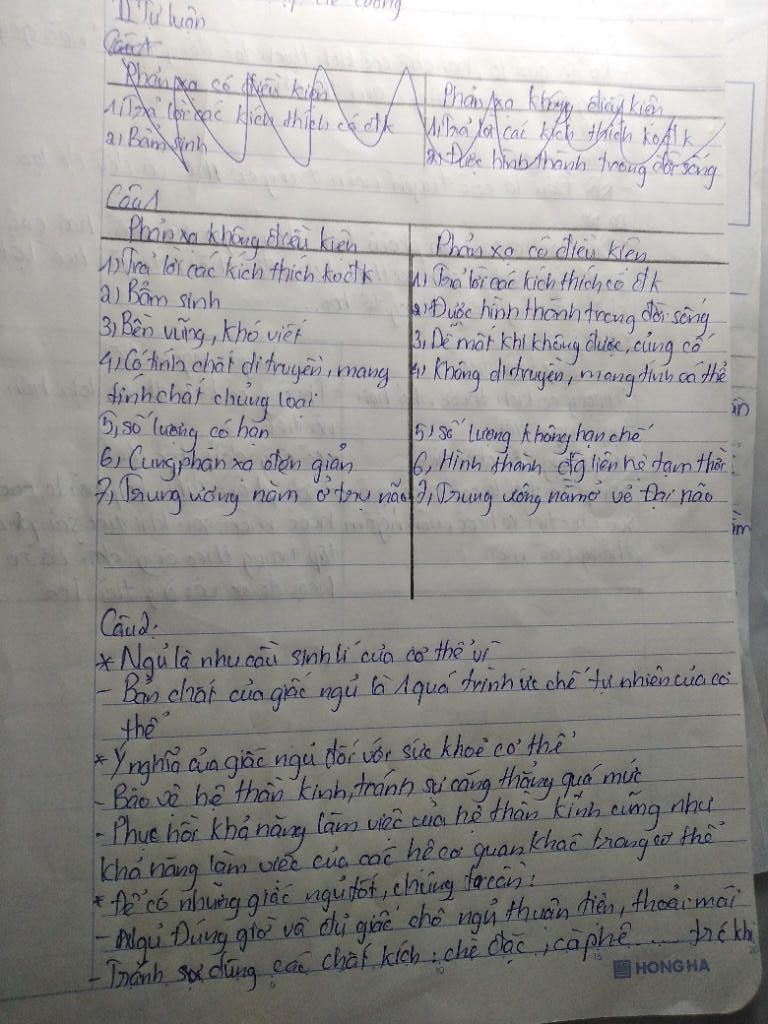 II, Tự luận
Câu 1
Phản xạ có điều kiện
Phản xạ không điều kiện
1, Trả lời các kích thích có đk
1, Trả lời các kích thích ko đk
2, Bẩm sinh
2, Được hình thành trong đời sống
Câu 1
Phản xạ không điều kiện
Phản xạ có điều kiện
1, Trả lời các kích thích ko đk
1, Trả lời các kích thích có đk
2, Bẩm sinh
2, Được hình thành trong đời sống
3, Bền vững, khó viết
3, Dễ mất khi không được, củng cố
4, Có tính chất di truyền, mang
4, Không di truyền, mang tính cá thể
tính chất chủng loại
5, số lượng có hạn
5, số lượng không hạn chế
6, Cung phản xạ đơn giản
6, Hình thành đg liên hệ tạm thời
7, Trung ương nằm ở trụ não
7, Trung ương nằm ở vỏ đại não
Câu 2:
* Ngủ là nhu cầu sinh lí của cơ thể vì
- Bản chất của giấc ngủ là 1 quá trình ức chế tự nhiên của cơ
thể
* Ý nghĩa của giấc ngủ đối với sức khoẻ cơ thể
- Bảo vệ hệ thần kinh, tránh sự căng thẳng quá mức
- Phục hồi khả năng làm việc của hệ thần kinh cũng như
khả năng làm việc của các hệ cơ quan khác trong cơ thể
* Để có những giấc ngủ tốt, chúng ta cần:
- Ngủ Đúng giờ và đủ giấc chỗ ngủ thuận tiện, thoải mái
- Tránh sử dụng các chất kích: chè đặc, cà phê .... trc khi
HONG HA